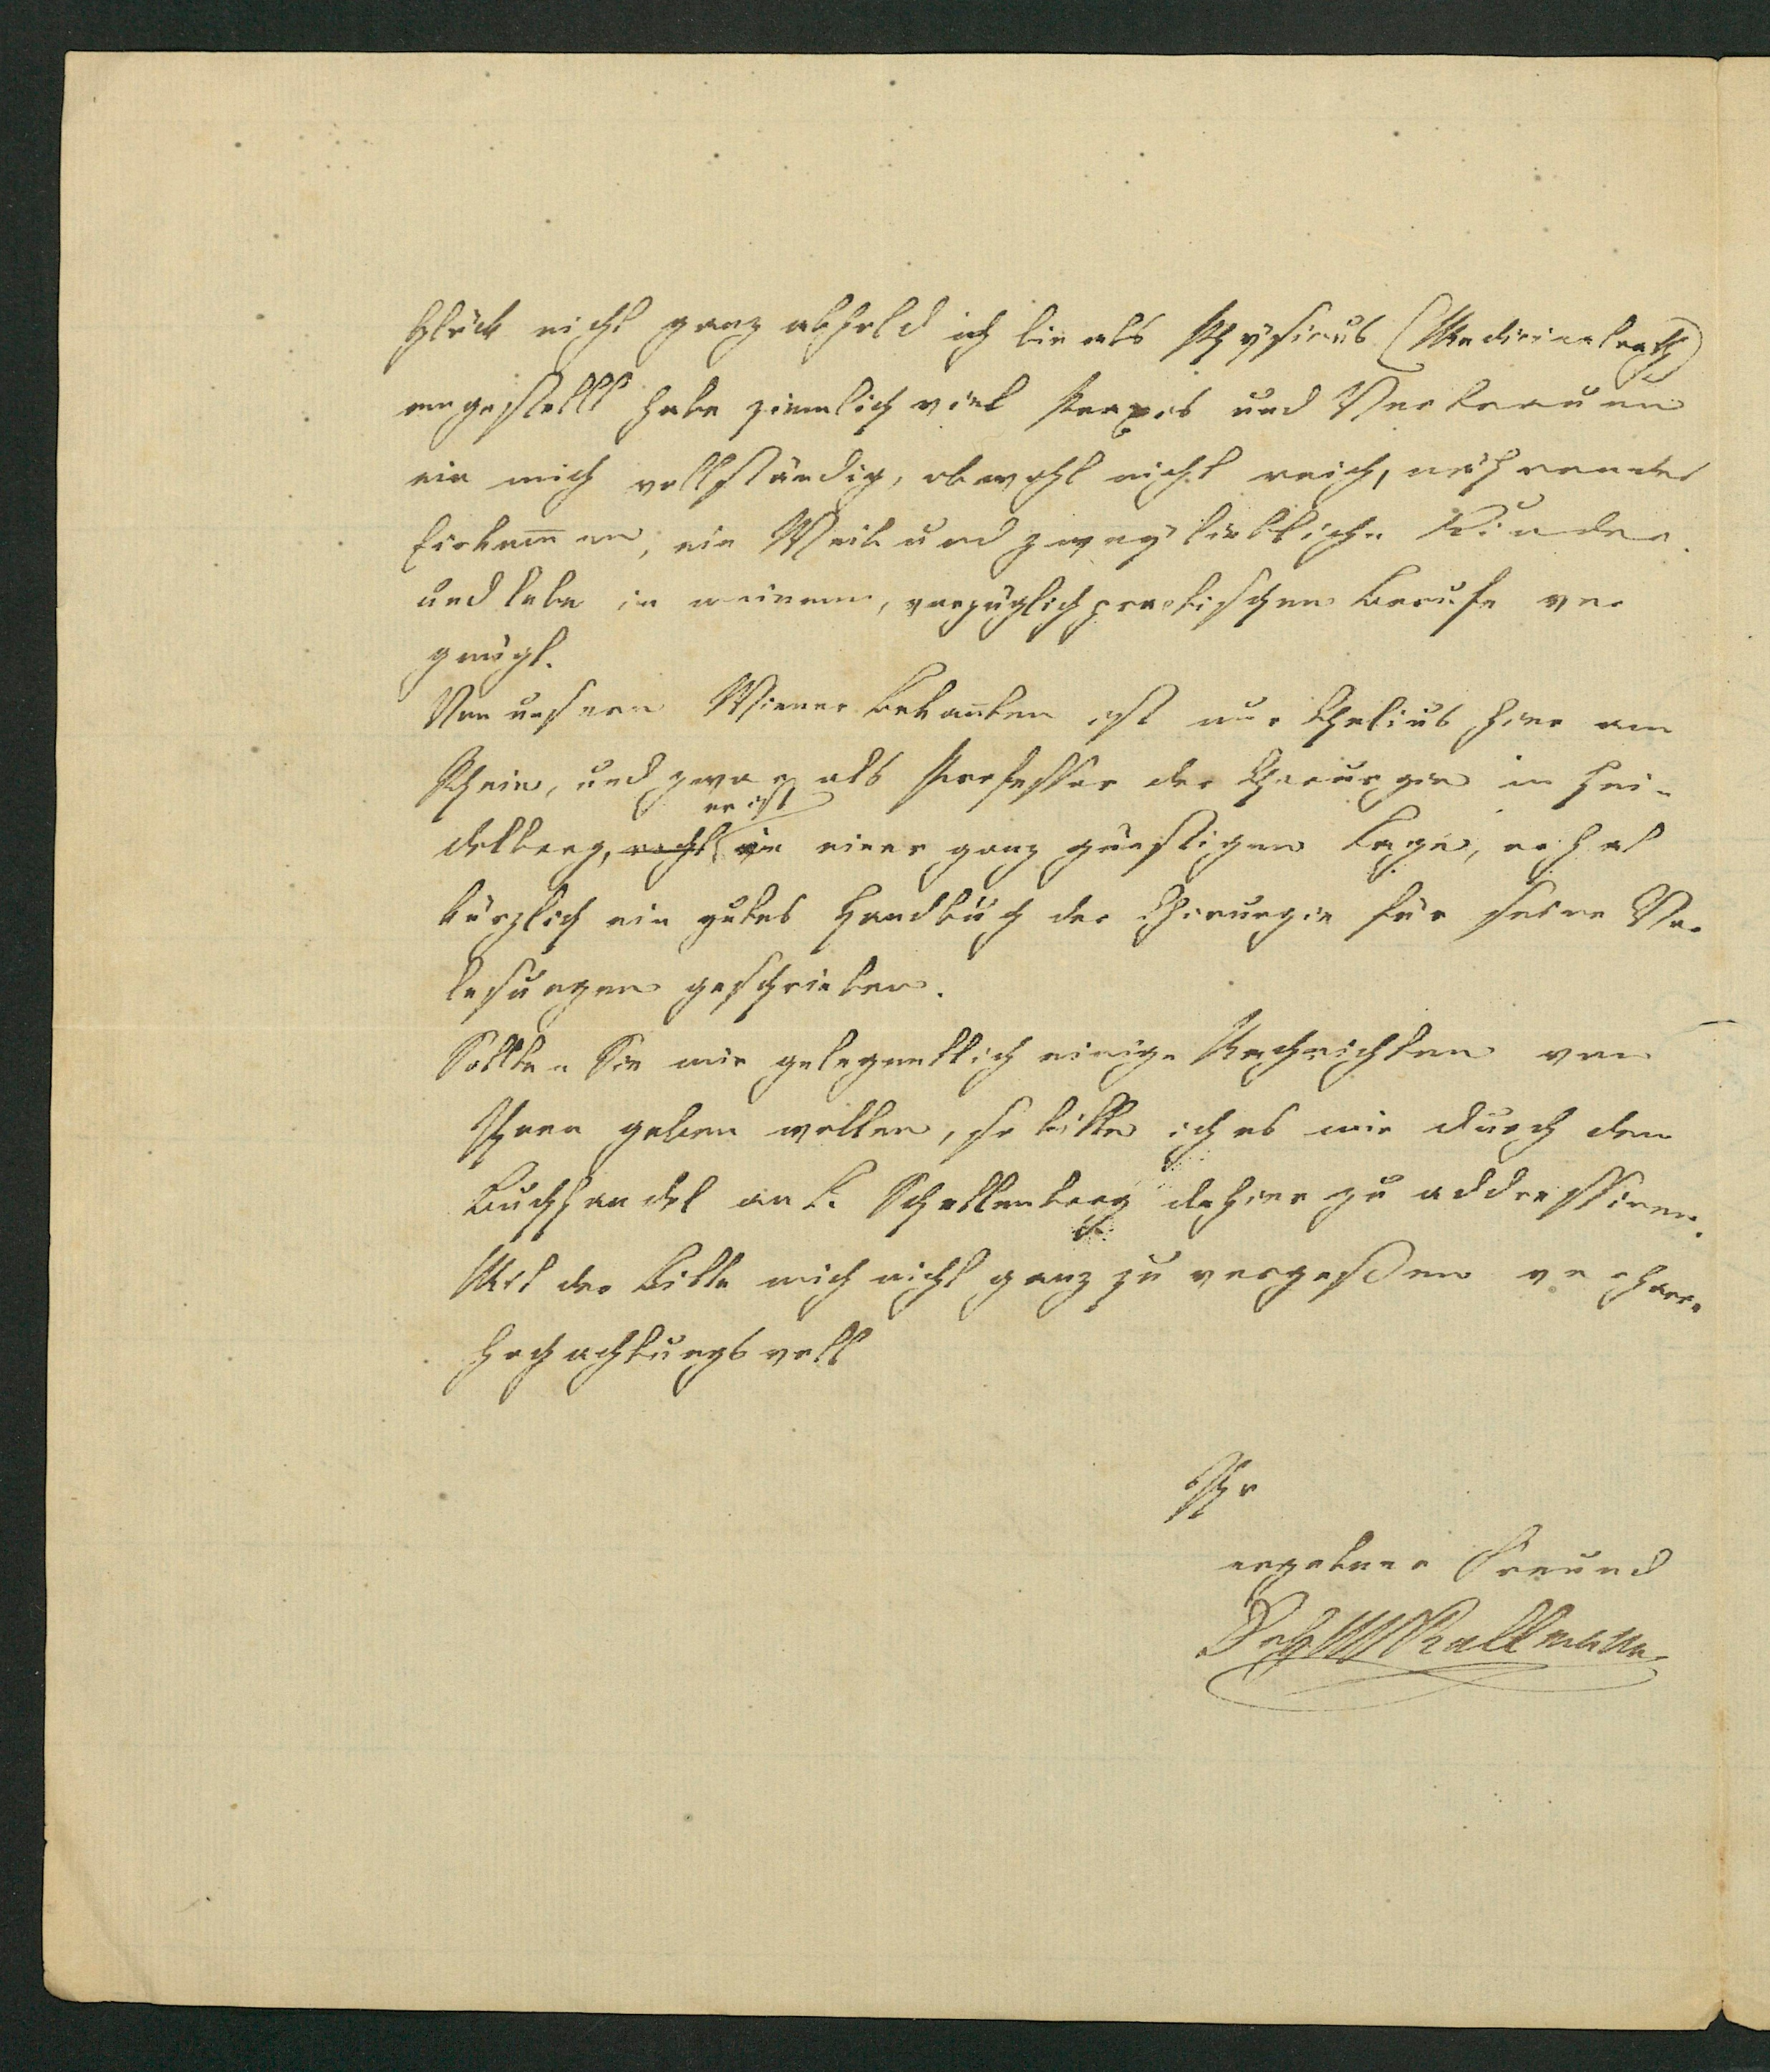 Glück nicht ganz abhold ich bin als Physicus (Medicinalrath)
angestellt habe ziemlich viel Praxis und Vertrauen
ein mich vollständig, obwohl nicht reich, nährendes
Einkom̅en, ein Weib und zwey liebliche Kinder.
und lebe in meinem, vorzüglich practischen Berufe ver
gnügt.
Von unsern Wiener Bekan̅ten ist nur Chelius hier am
Rhein, und zwar als Professor der Chirurgie in Hei-
delberg, er ist in einer ganz günstigen Lage, er hat
kürzlich ein gutes Handbuch der Chirurgie für seine Vor
lesungen geschrieben.
Sollten Sie mir gelegentlich einige Nachrichten von
Ihnen geben wollen, so bitte ich es mir durch den
Buchhandel an L. Schellenberg dahier zu addressiren.
Mit der Bitte mich nicht ganz zu vergeßen verharre
Hochachtungsvoll
Ihr
ergebner Freund
Rullmann